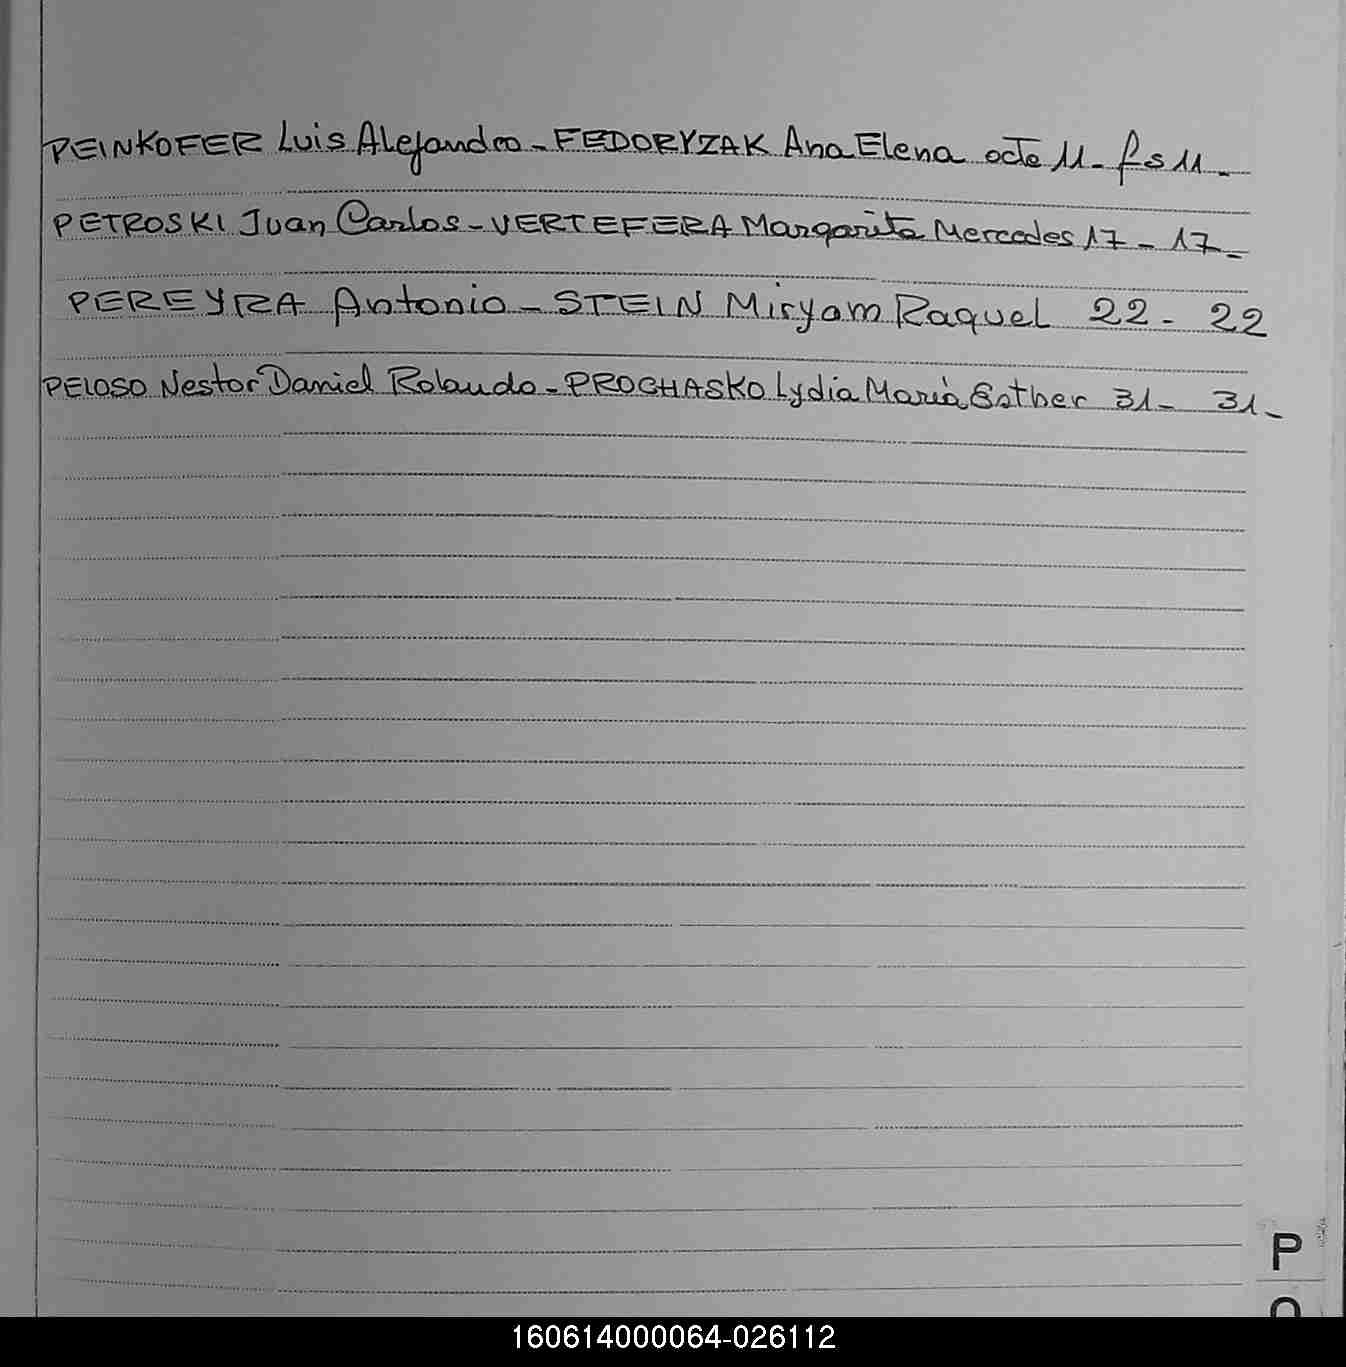 PEINKOFER Luis Alejandro - FEDORYZAK Ana Elena acta 11 - fs 11 -
PETROSKI Juan Carlos - VERTEFERA Margarita Mercedes 17 - 17 -
PEREYRA Antonio - STEIN Miryam Raquel 22 - 22
PELOSO Nestor Daniel Rolando - PROCHASKO Lydia María Esther 31 - 31 -
P
160614000064-026112